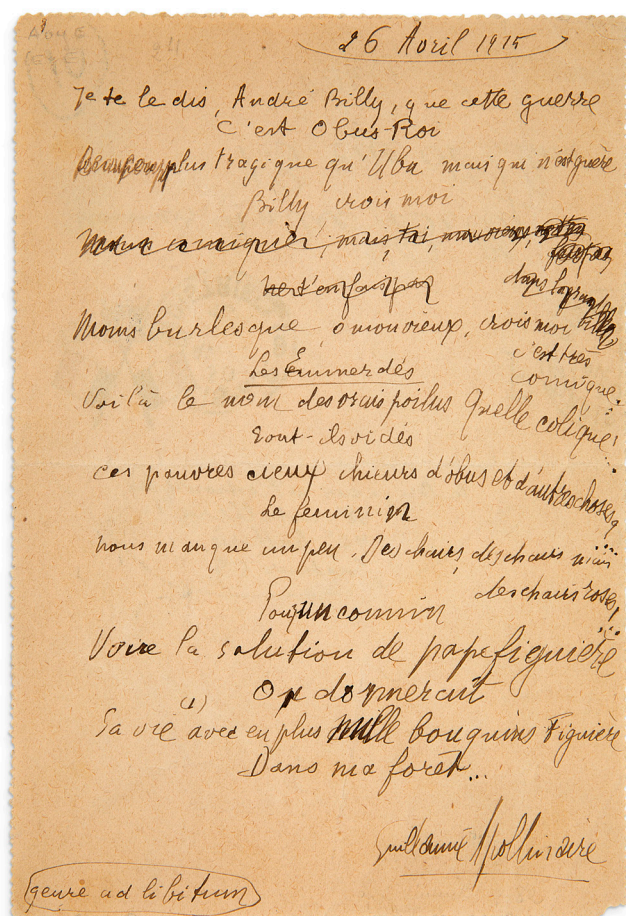 26 Avril 1915
Je te le dis, André Billy, que cette guerre
C'est Obus-Roi
plus tragique qu'Ubu mais qui n'est guère
Billy crois moi
Moins burlesque, ô mon vieux, crois moi
c'est très
comique.
Les Emmerdés
Voilà le nom des vrais poilus Quelle colique!
Sont-ils vidés
ces pauvres cieux chieurs d'obus et d'autres choses
Le féminin
nous manque un peu. Des chairs, des chairs
des chairs roses!
Pour un connin
Voire la solution de papefiguière
On donnerait
Sa vie (1) avec en plus mille bouquins Figuière
Dans ma forêt...
Guillaume Apollinaire
genre ad libitum